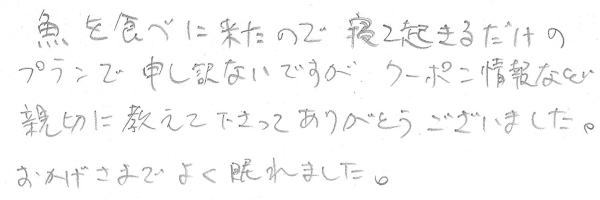 魚を食べに来たので寝て起きるだけの
プランで申し訳ないですが クーポン情報など
親切に教えて下さってありがとうございました。
おかげさまでよく眠れました。